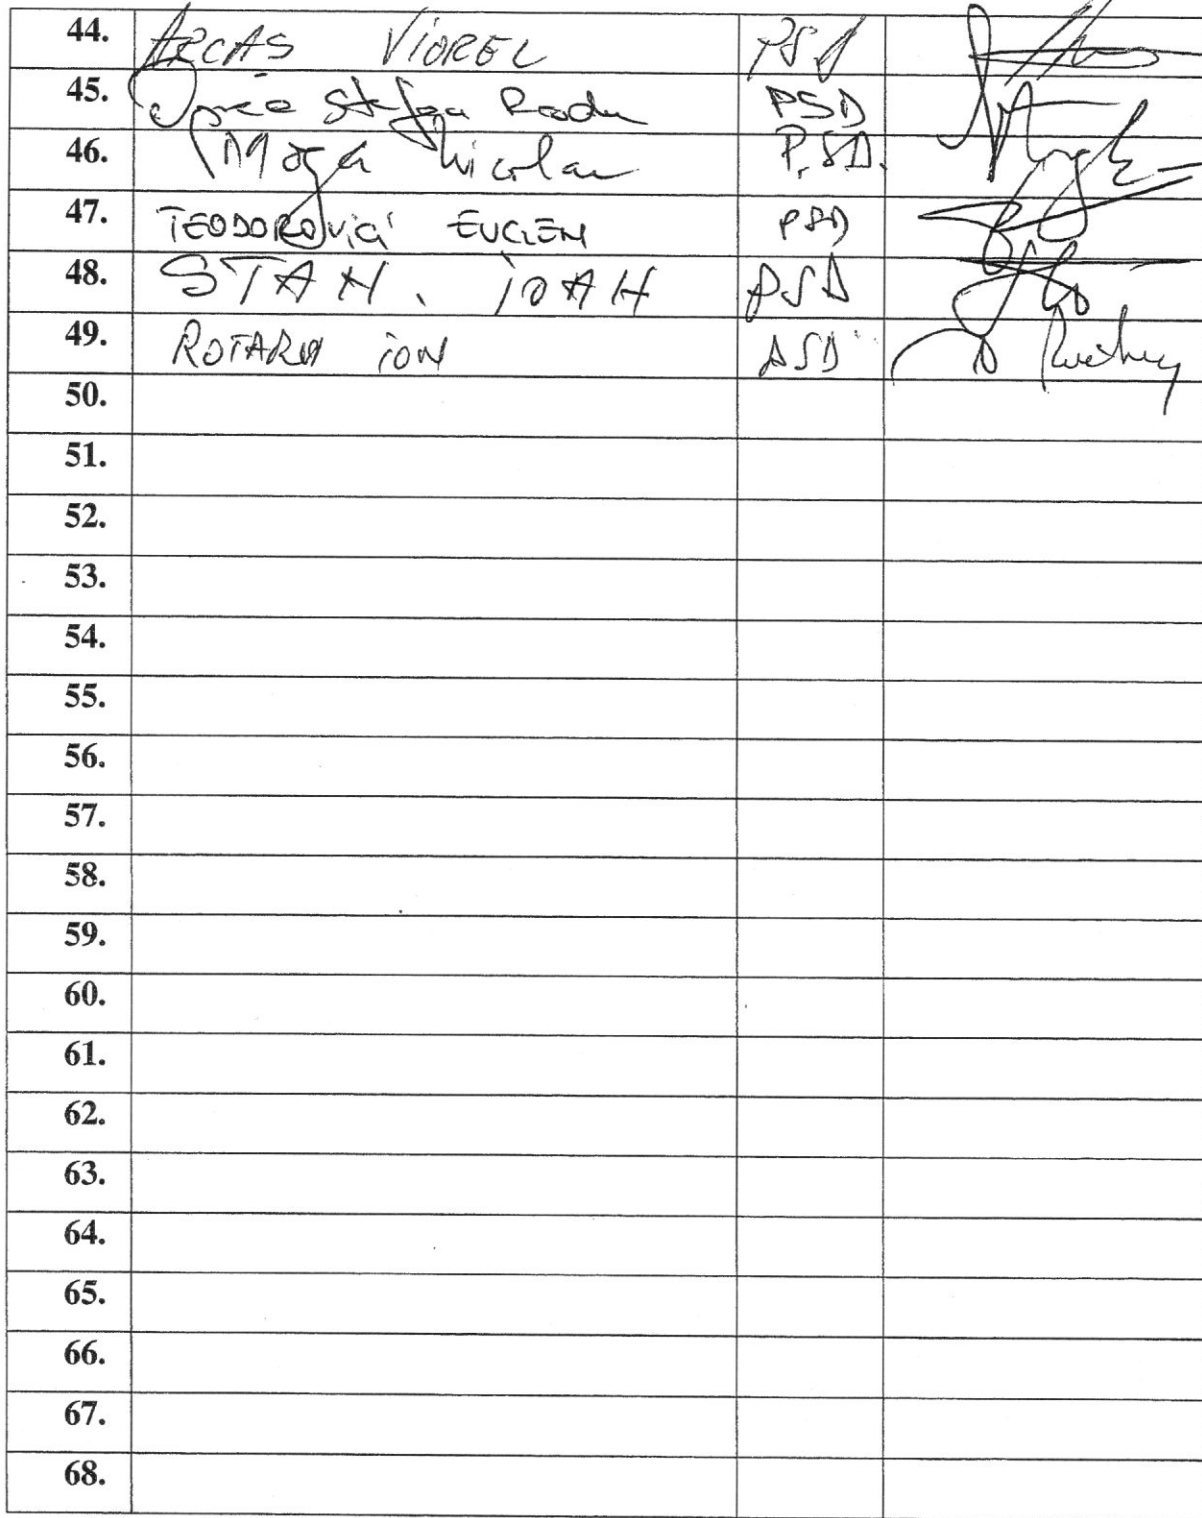 44. ARCAS VIOREL PSD
45. Oprea Stefan Radu PSD
46. Moga Nicolae P.SD.
47. TEODOROVICI EUGEN PSD
48. STAN. IOAN PSD
49. ROTARU ION PSD
50.
51.
52.
53.
54.
55.
56.
57.
58.
59.
60.
61.
62.
63.
64.
65.
66.
67.
68.